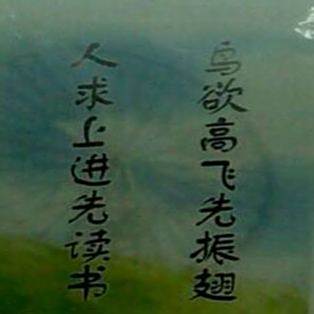 鸟欲高飞先振翅
人求上进先读书